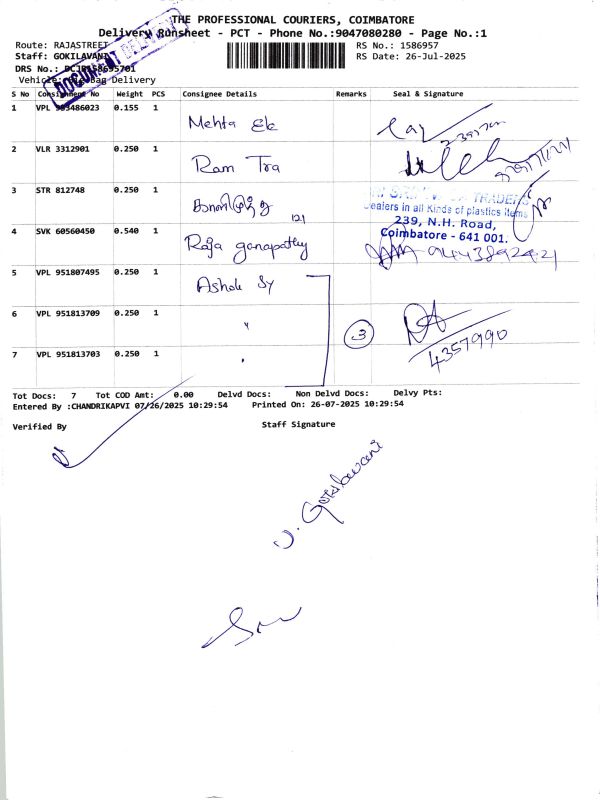 THE PROFESSIONAL COURIERS, COIMBATORE
Delivery Runsheet - PCT - Phone No.:9047080280 - Page No.:1
Route: RAJASTREET
RS No.: 1586957
Staff: GOKILAVANI
RS Date: 26-Jul-2025
DRS No.:
DOCUMENT DELIVERY
Bag Delivery
S No Consignment No Weight PCS Consignee Details Remarks Seal & Signature
1 VPL 953486023 0.155 1 Mehta Ek
2 VLR 3312901 0.250 1 Ram Tra
3 STR 812748 0.250 1
TRADERS
Dealers in all Kinds of plastics items
239, N.H. Road,
Coimbatore - 641 001.
4 SVK 60560450 0.540 1 Raja ganapathy
5 VPL 951807495 0.250 1 Ashok Sy
6 VPL 951813709 0.250 1 "
3
4357990
7 VPL 951813703 0.250 1 "
Tot Docs: 7 Tot COD Amt: 0.00 Delvd Docs: Non Delvd Docs: Delvy Pts:
Entered By :CHANDRIKAPVI 07/26/2025 10:29:54 Printed On: 26-07-2025 10:29:54
Verified By Staff Signature
U. Gokilavani